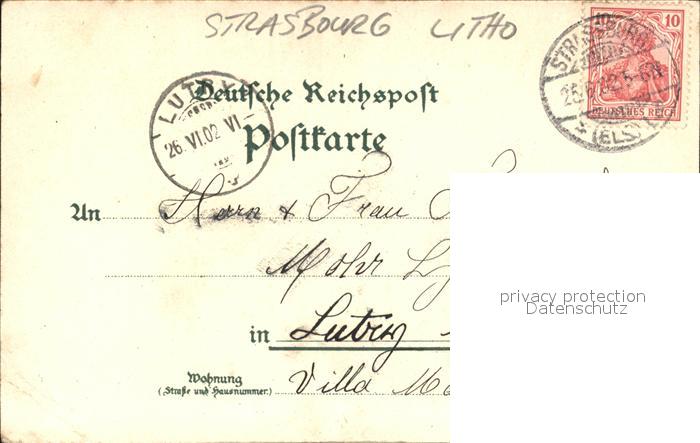 STRASBOURG LITHO
10
DEUTSCHES REICH
STRASSBURG
25.6.02.5-6N
(ELS)
LUTRY
26.VI.02 VI
Deutsche Reichspost
Postkarte
An Herrn & Frau
Mohr
in Lutry
Wohnung
(Straße und Hausnummer)
Villa
privacy protection
Datenschutz